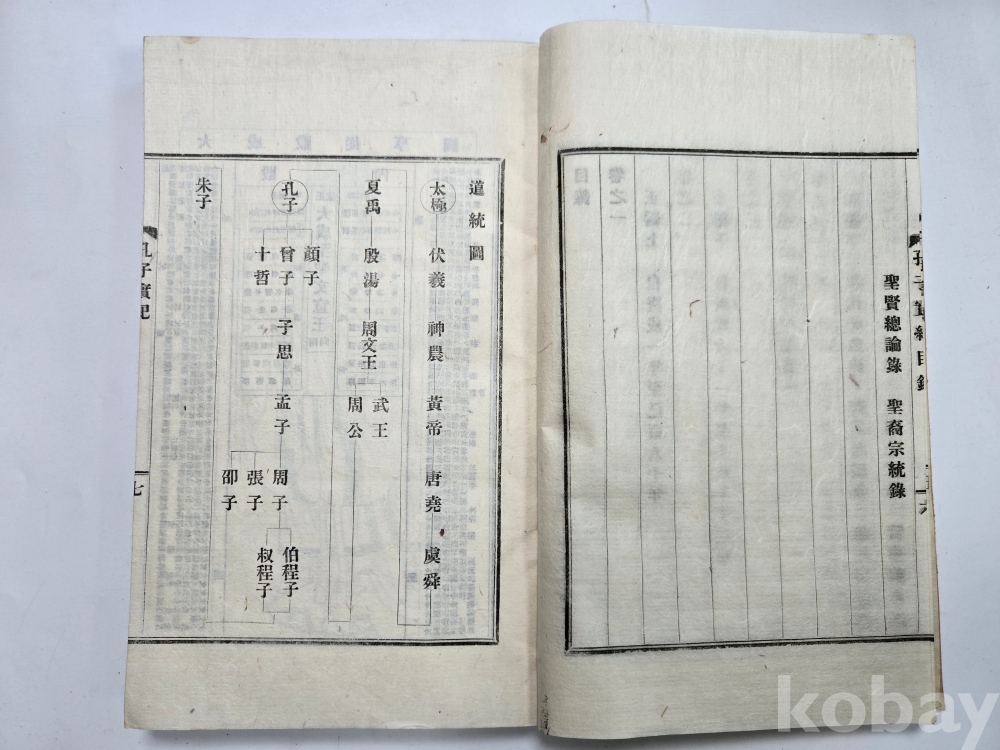 聖賢總論錄 聖裔宗統錄
道統圖
太極 伏羲 神農 黃帝 唐堯 虞舜
夏禹 殷湯 周文王 武王
周公
孔子 顏子
曾子 子思 孟子 周子 伯程子
十哲 張子 叔程子
邵子
朱子
孔子實記
七
kobay